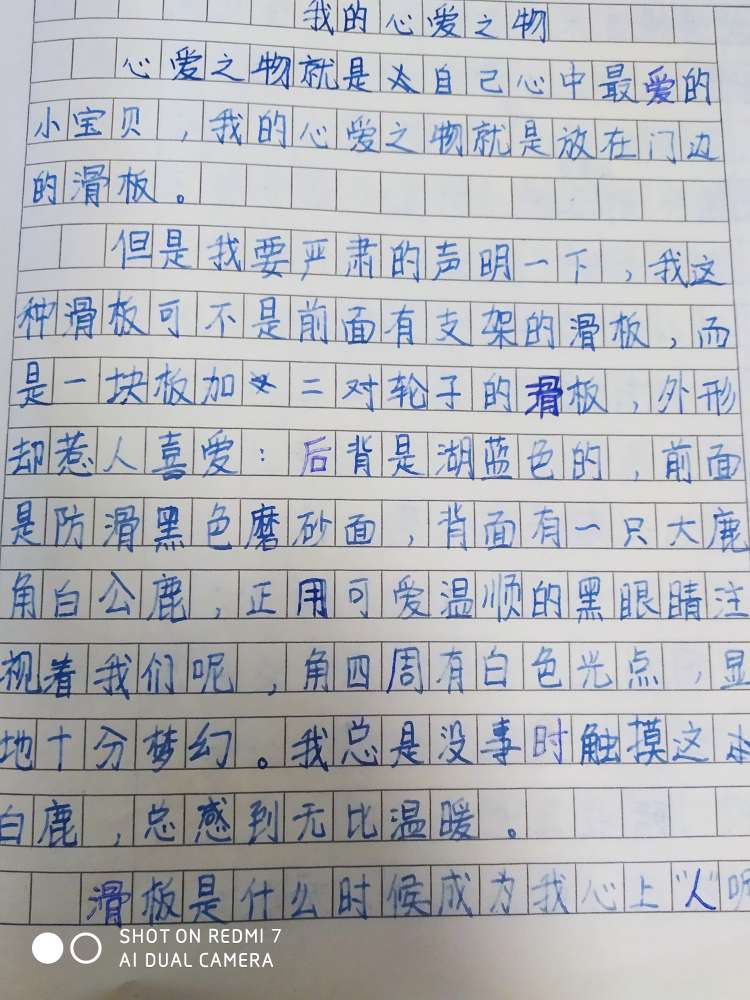 我的心爱之物
心爱之物就是自己心中最爱的
小宝贝，我的心爱之物就是放在门边
的滑板。
但是我要严肃的声明一下，我这
种滑板可不是前面有支架的滑板，而
是一块板加二对轮子的滑板，外形
却惹人喜爱：后背是湖蓝色的，前面
是防滑黑色磨砂面，背面有一只大鹿
角白公鹿，正用可爱温顺的黑眼睛注
视着我们呢，角四周有白色光点，显
地十分梦幻。我总是没事时触摸这
白鹿，总感到无比温暖。
滑板是什么时候成为我心上“人”呢
SHOT ON REDMI 7
AI DUAL CAMERA